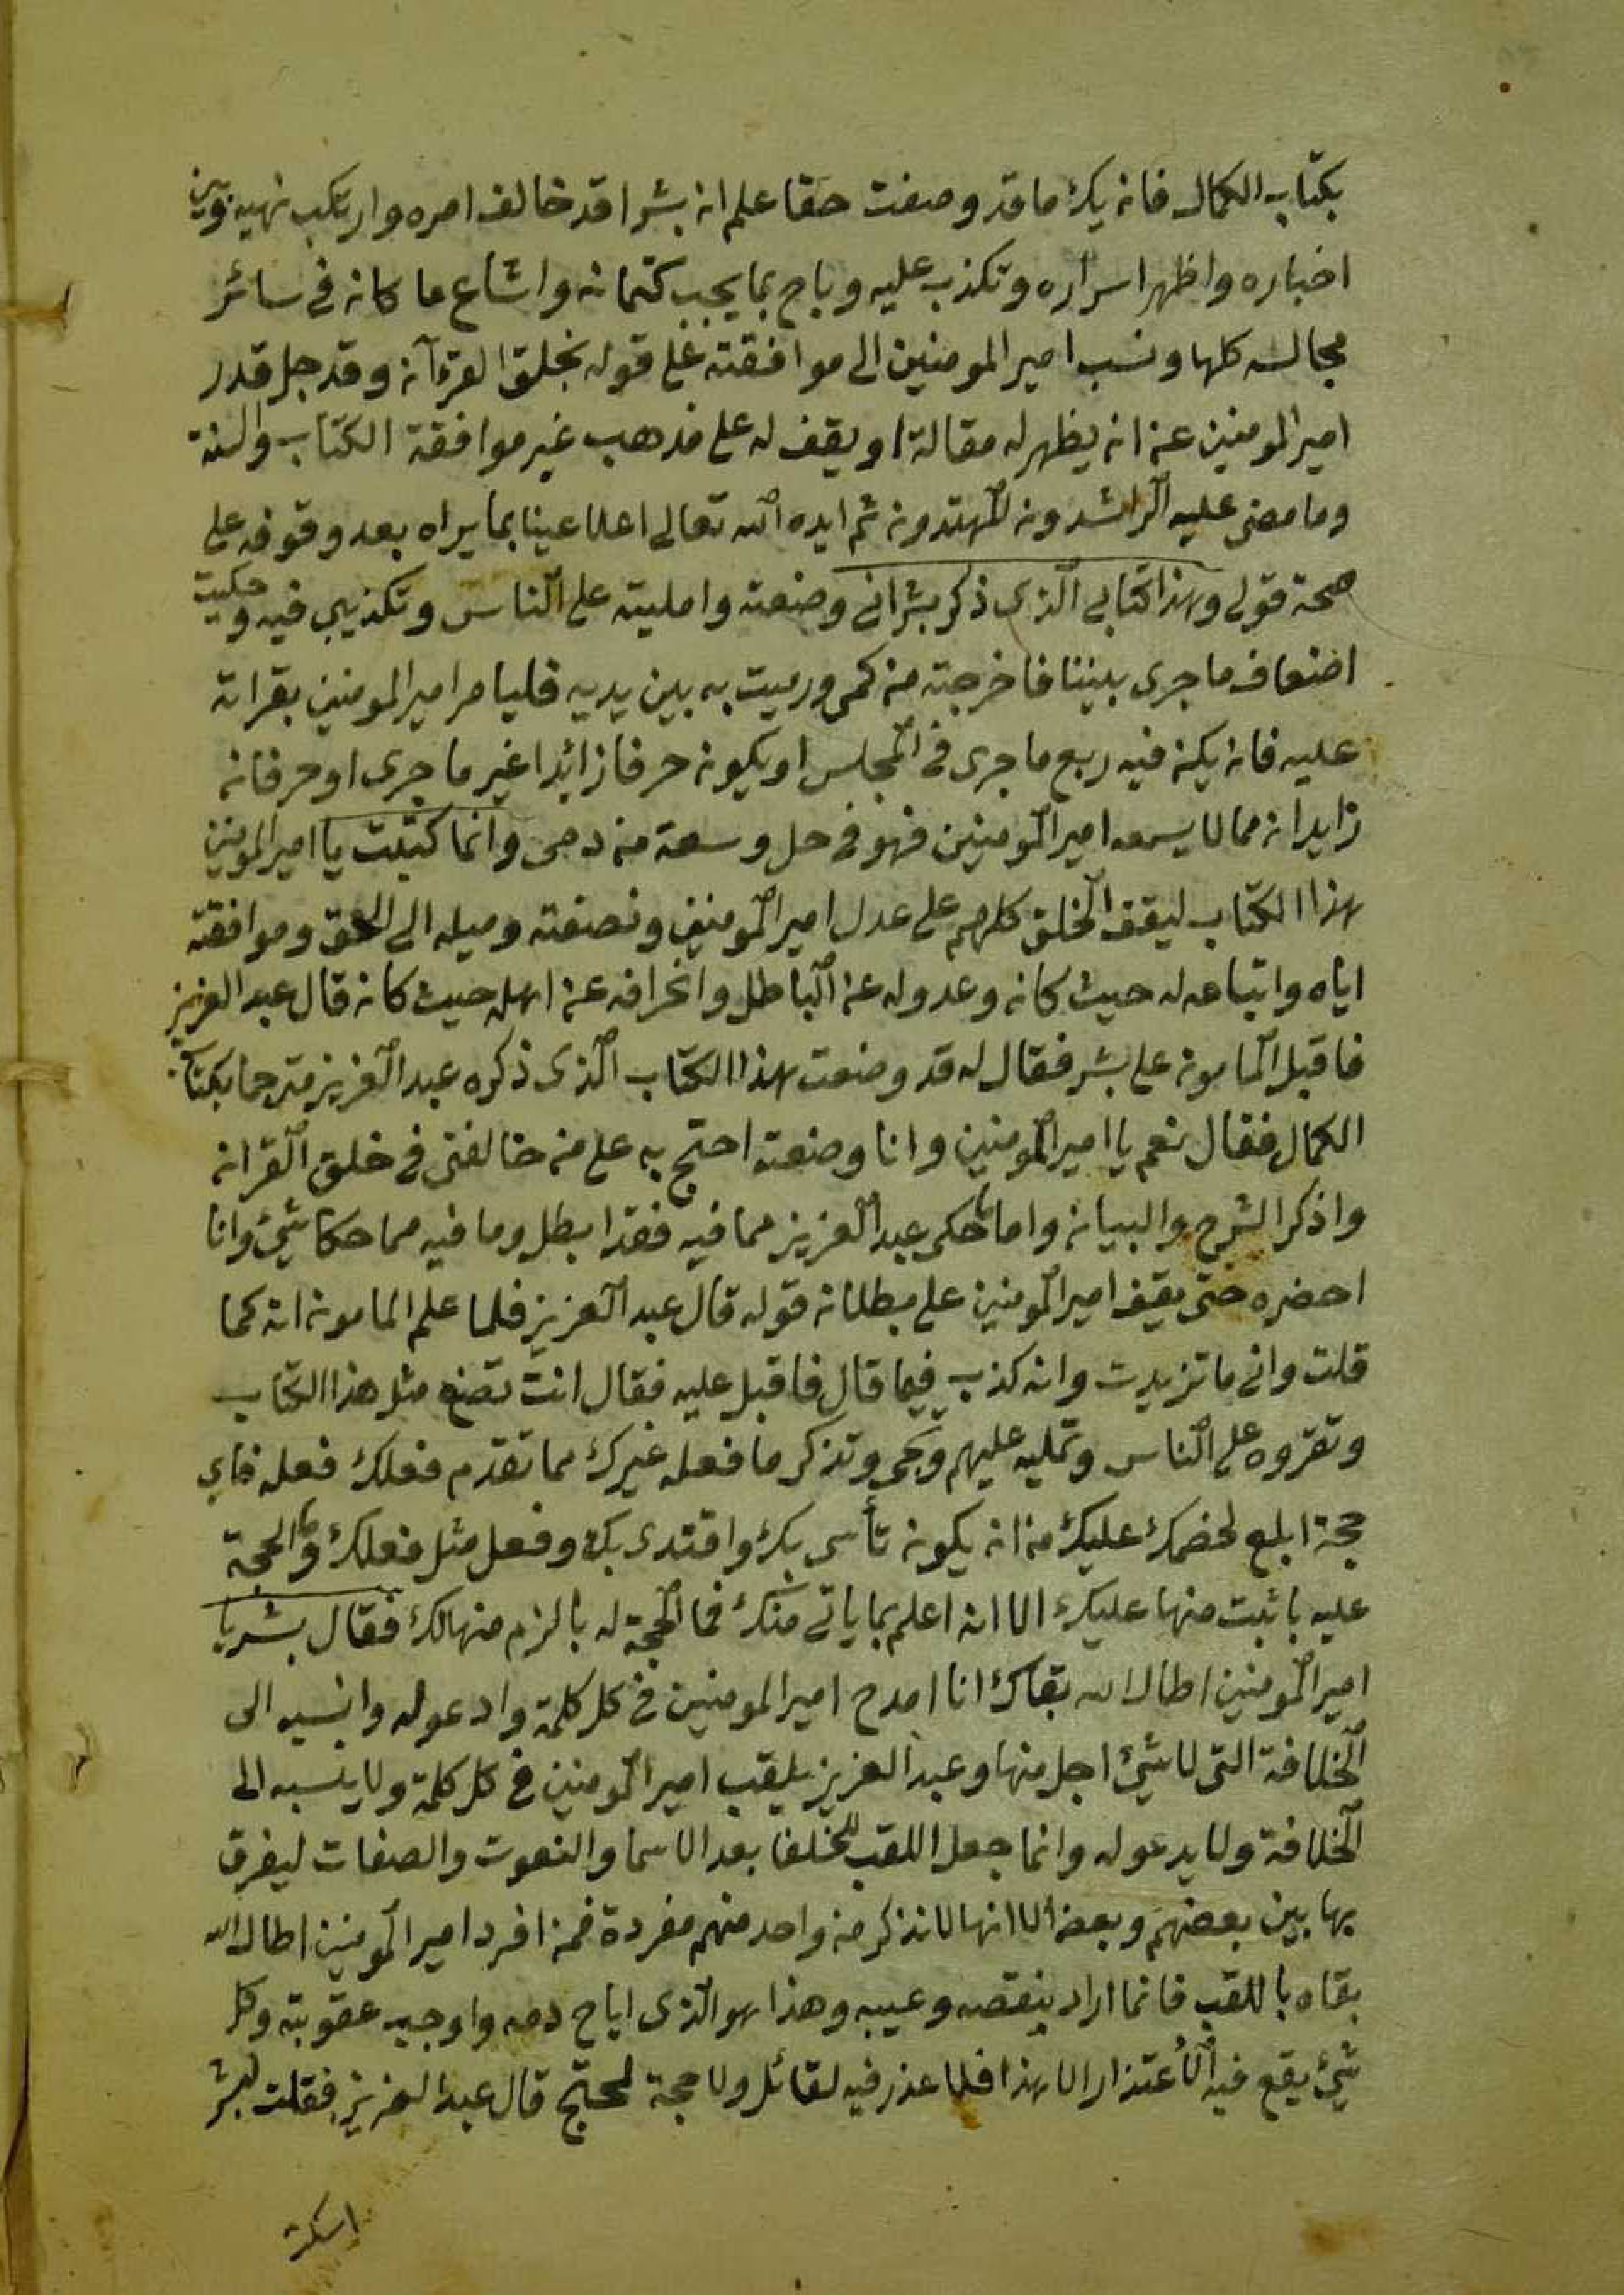 بكتاب الكمال فان يك ما قد وصفت حقا علم ان بشرا قد خالف امره وارتكب نهيه وبين
اخباره واظهر اسراره وتكذب عليه وباح بما يجب كتمانه واشاع ما كان في سائر
مجالسه كلها ونسب امير المومنين الى موافقته على قوله بخلق القرآن وقد جل قدر
امير المومنين عن ان يظهر له مقالة او يقف له على مذهب غير موافقة الكتاب والسنة
وما مضى عليه الراشدون المهتدون ثم ايده الله تعالى اعلا عينا بما يراه بعد وقوفه على
صحة قولي وهذا كتابي الذي ذكر بشر اني وضعته وامليته على الناس وتكذيبي فيه وحكيت
اضعاف ما جرى بيننا فاخرجته من كمي ورميت به بين يديه فليامر امير المومنين بقراته
عليه فان يكن فيه ربع ما جرى في المجلس او يكون حرفا زائدا غير ما جرى او حرفا نه
زايدا نه مما لا يسمعه امير المومنين فهو في حل وسعة من دمي وانما كتبت يا امير المومنين
هذا الكتاب ليقف الخلق كلهم على عدل امير المومنين ونصفته وميله الى الحق وموافقته
اياه واتباعه له حيث كان وعدوله عن الباطل وانحرافه عن اهله حيث كان قال عبد العزيز
فاقبل المامون على بشر فقال له قد وضعت هذا الكتاب الذي ذكره عبد العزيز مترجما بكتاب
الكمال فقال نعم يا امير المومنين وانا وضعته احتج به على من خالفني في خلق القران
واذكر الشرح والبيان واما ما حكى عبد العزيز مما فيه فقد ابطل وما فيه مما حكا شيئ وانا
احضره حتى يقف امير المومنين على بطلان قوله قال عبد العزيز فلما علم المامون انه كما
قلت واني ما تزيدت وانه كذب فيما قال فاقبل عليه فقال انت تضع مثل هذا الكتاب
وتقروه على الناس وتمليه عليهم وتذكر ما فعله غيرك مما تقدم فعلك فعله فاي
حجة ابلغ لخصمك عليك من ان يكون تأسى بك واقتدى بك وفعل مثل فعلك وما الحجة
عليه باثبت منها عليك الا انه اعلم بما ياتي منك فما الحجة له بالزم منها لك فقال بشر يا
امير المومنين اطال الله بقاك انا امدح امير المومنين في كل كلمة وادعو له وانسبه الى
الخلافة التي لا شيئ اجل منها وعبد العزيز يلقب امير المومنين في كل كلمة ولا ينسبه الى
الخلافة ولا يدعو له وانما جعل اللقب للخلفا بعد الاسما والنعوت والصفات ليفرق
بها بين بعضهم وبعض الا انها لا تذكر من واحد منهم مفردة فمن افرد امير المومنين اطال الله
بقاه باللقب فانما اراد بنقصه وعيبه وهذا هو الذي اباح دمه واوجب عقوبته وكل
شيئ يقع فيه الأعتذار الا هذا فلا عذر فيه لقائل ولا حجة لمحتج قال عبد العزيز فقلت لبشر